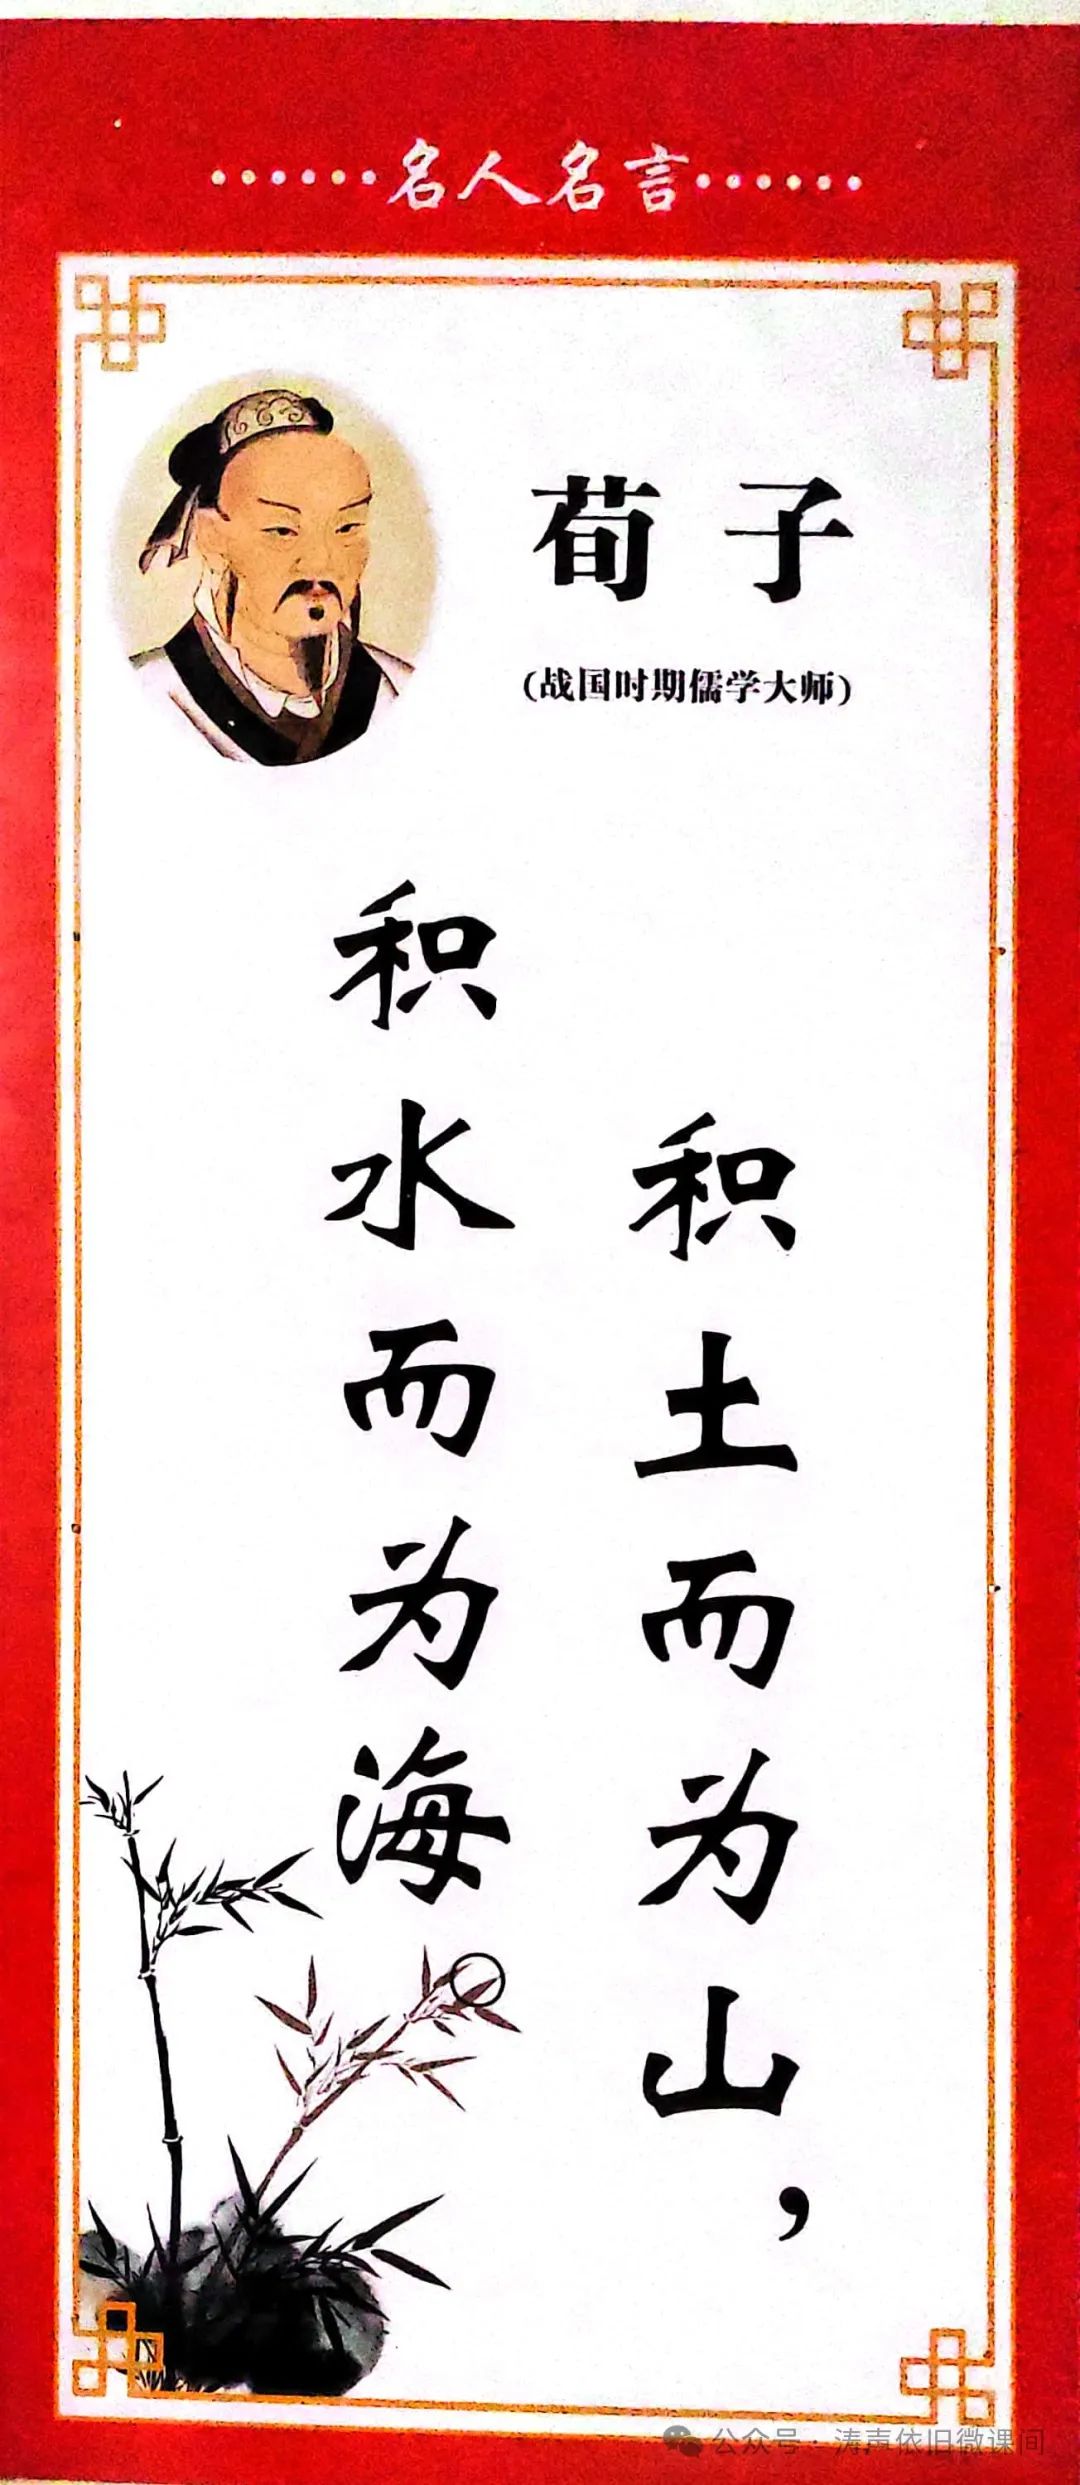 名人名言
荀子
(战国时期儒学大师)
积土而为山，
积水而为海。
公众号·涛声依旧微课间